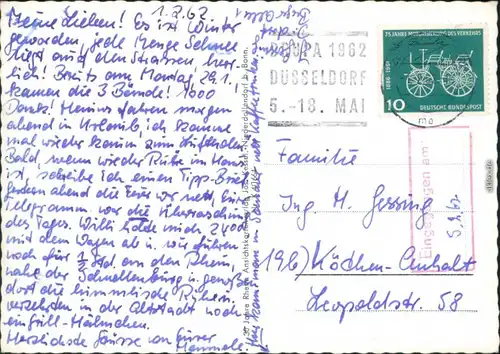 1.2.62
Meine Lieben! Es ist Winter
geworden, jede Menge Schnee
liegt auf den Strassen, herr-
lich! Bereits am Montag 29.1.
kamen die 3 Bände! 1000
Dank! Hennings fahren morgen
abend in Urlaub, ich komme
mal wieder kaum zum
Bald, wenn wieder Ruhe im Haus
ist, schreibe ich einen Tipp-Brief
gestern abend die Feier war nett, Euer
Telegramm war die Überraschung
des Tages. Willi holte mich 24.00
mit dem Wagen ab u. wir fuhren
noch für 1 Std an den Rhein,
nahe der Schnellenburg u. genossen
dort die himmlische Ruhe
in der Altstadt noch
ein Grill-Hähnchen.
Herzlichste Grüsse von Eurer
Hannele.
30 Jahre Rhein Ansichtskarten
Niederdollendorf b. Bonn
1962
DÜSSELDORF
5.-18. MAI
75 JAHRE MOTORISIERUNG DES VERKEHRS
1886-1961
10
DEUTSCHE BUNDESPOST
Eingegangen am:
5.2.62
Familie
Ing H. Gessing
19b) Köthen-Anhalt
Leopoldstr. 58